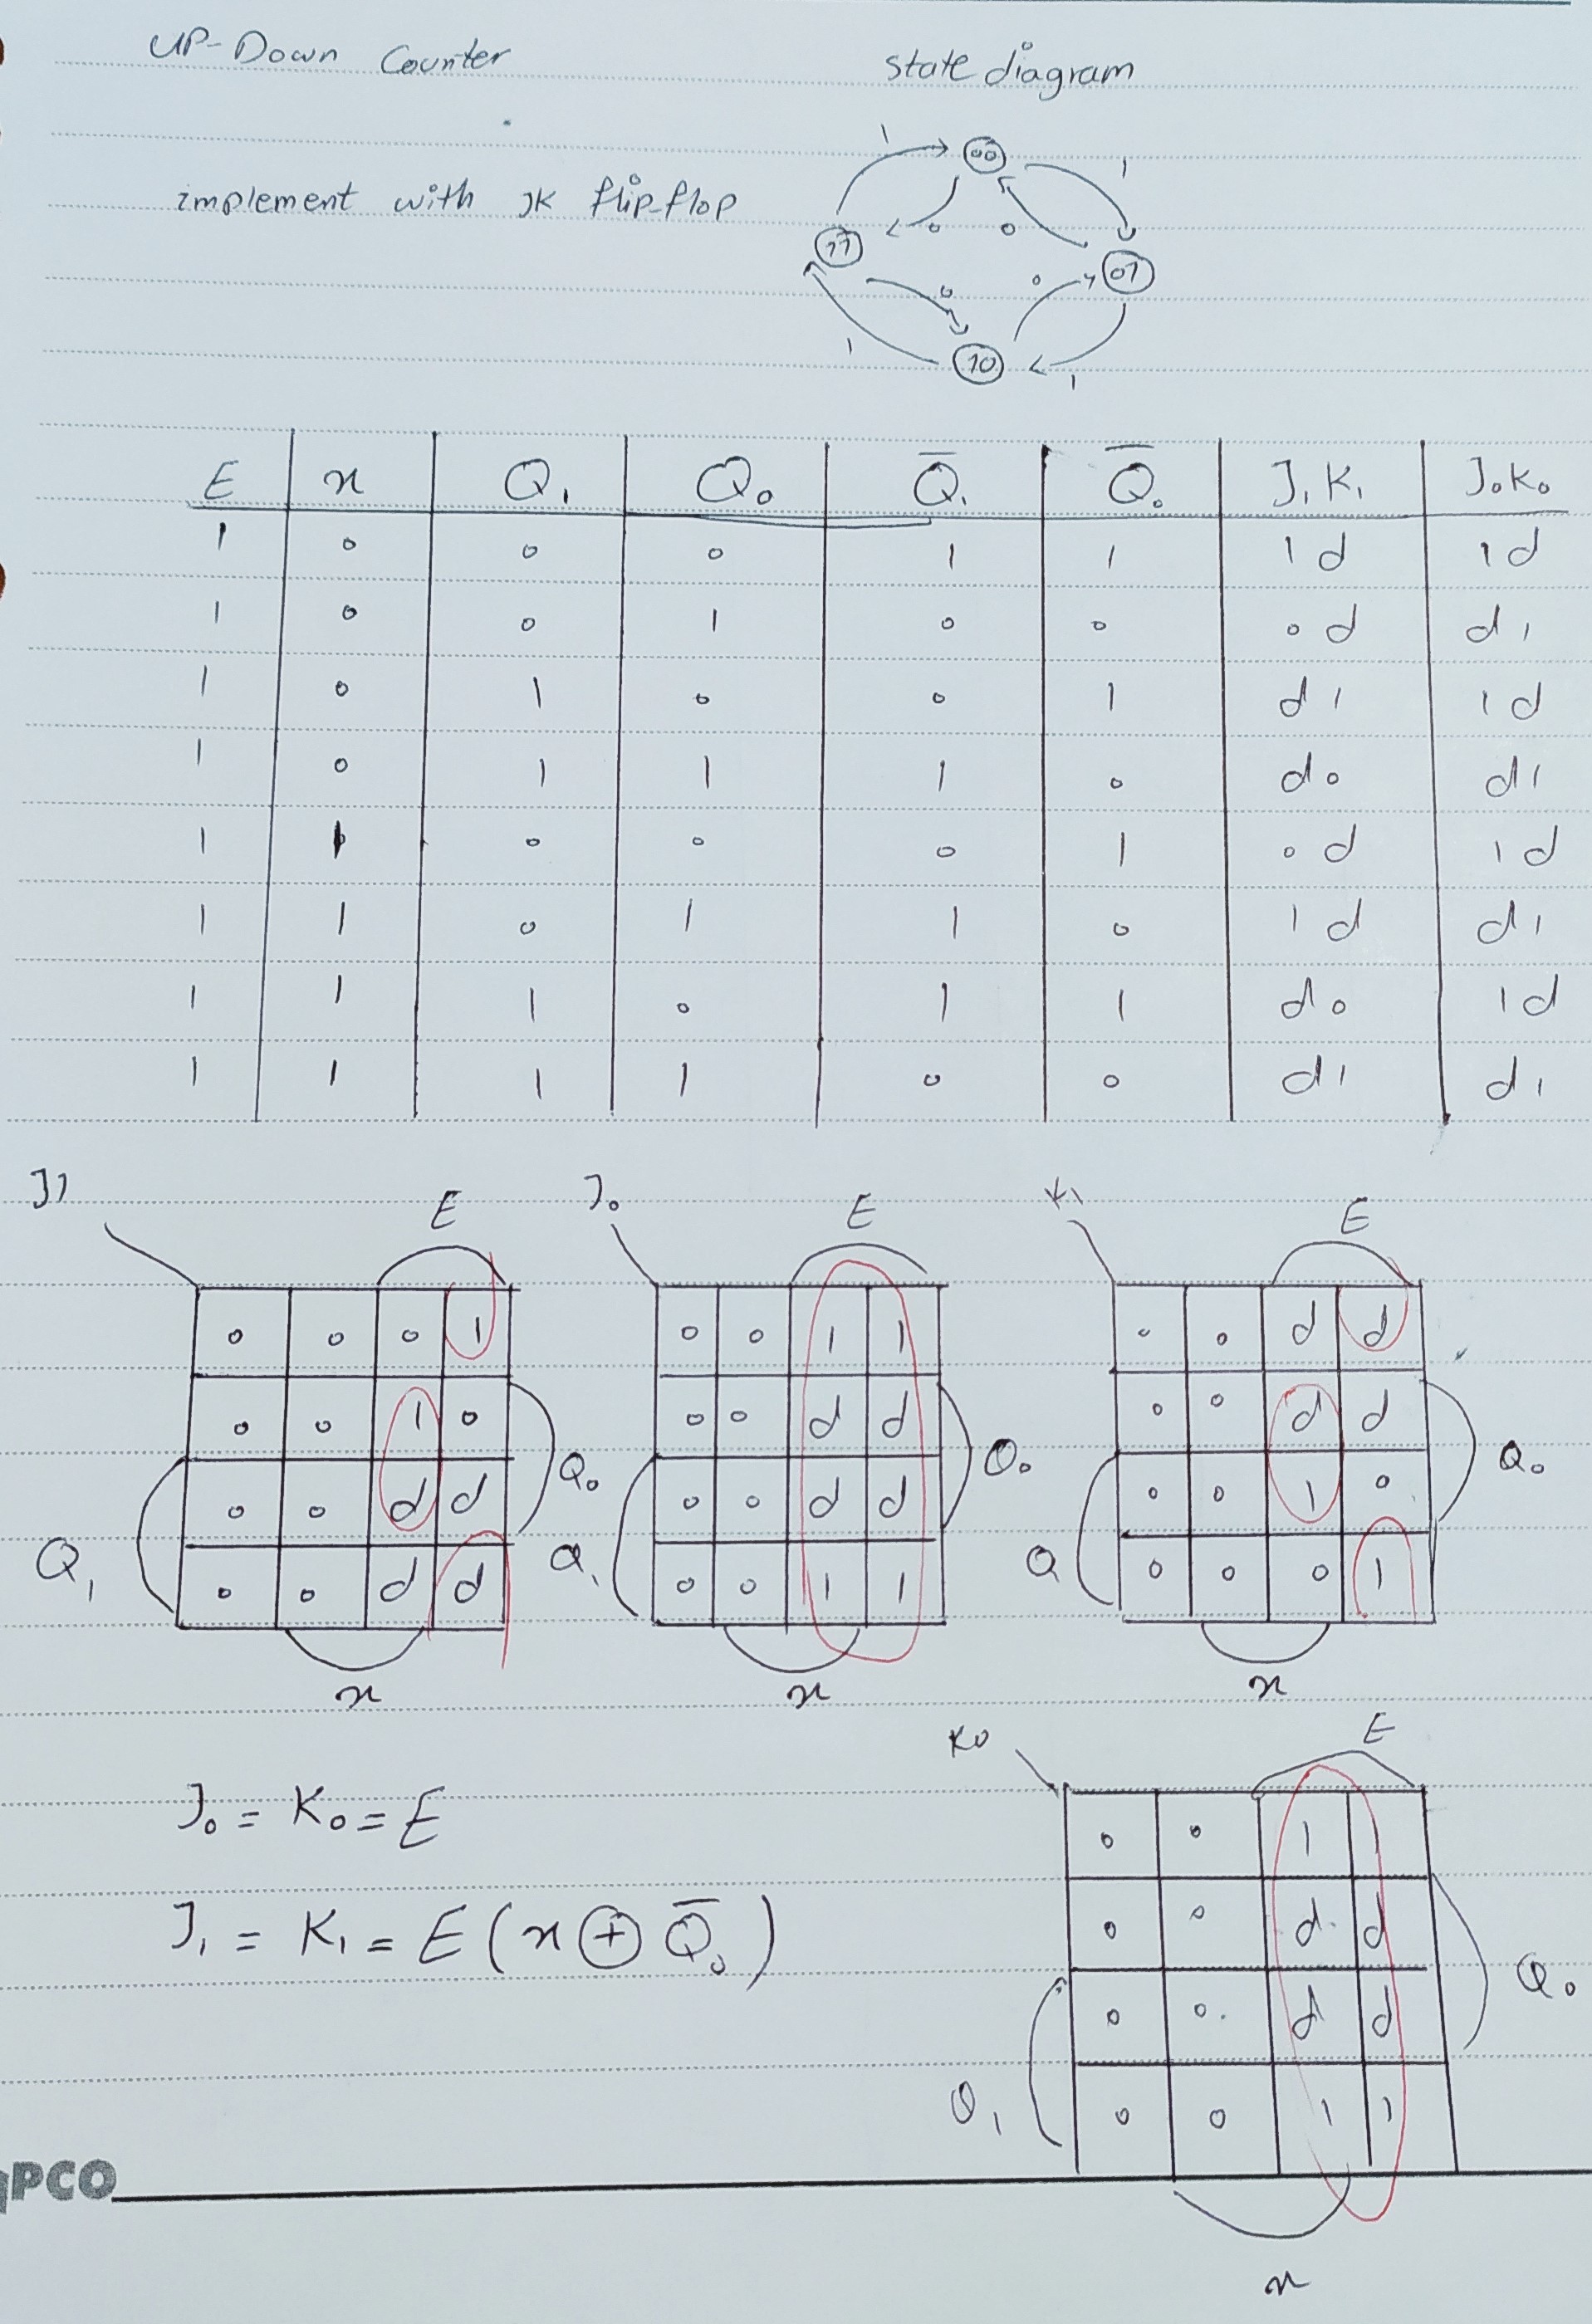 UP-Down Counter
state diagram
implement with JK flip-flop
1 00 1
0 0
11 01
0 0
1 10 1
E x Q₁ Q₀ Q̅₁ Q̅₀ J₁K₁ J₀K₀
1 0 0 0 1 1 1d 1d
1 0 0 1 0 0 0d d1
1 0 1 0 0 1 d1 1d
1 0 1 1 1 0 d0 d1
1 1 0 0 0 1 0d 1d
1 1 0 1 1 0 1d d1
1 1 1 0 1 1 d0 1d
1 1 1 1 0 0 d1 d1
J1 E
0 0 0 1
0 0 1 0
0 0 d d
0 0 d d
Q₀
Q₁
x
J₀ E
0 0 1 1
0 0 d d
0 0 d d
0 0 1 1
Q₀
Q₁
x
K₁ E
0 0 d d
0 0 d d
0 0 1 0
0 0 0 1
Q₀
Q
x
J₀ = K₀ = E
J₁ = K₁ = E (x ⊕ Q̅₀)
K0 E
0 0 1 1
0 0 d d
0 0 d d
0 0 1 1
Q₀
Q₁
x
PCO